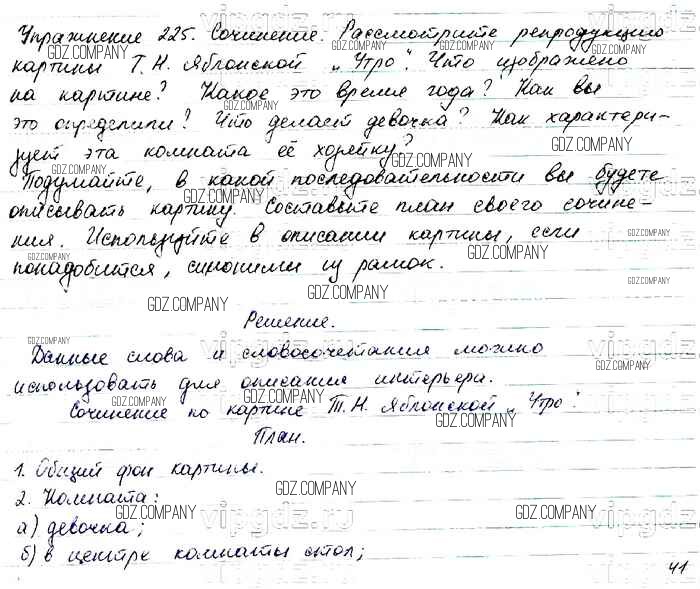 Упражнение 225. Сочинение. Рассмотрите репродукцию
картины Т. Н. Яблонской „Утро". Что изображено
на картине? Какое это время года? Как вы
это определили? Что делает девочка? Как характери-
зует эта комната её хозяйку?
Подумайте, в какой последовательности вы будете
описывать картину. Составьте план своего сочине-
ния. Используйте в описании картины, если
понадобится, синонимы из рамок.
Решение.
Данные слова и словосочетания можно
использовать для описания интерьера.
Сочинение по картине Т. Н. Яблонской „Утро".
План.
1. Общий фон картины.
2. Комната:
а) девочка;
б) в центре комнаты стол;
41
GDZ.COMPANY
vipgdz.ru